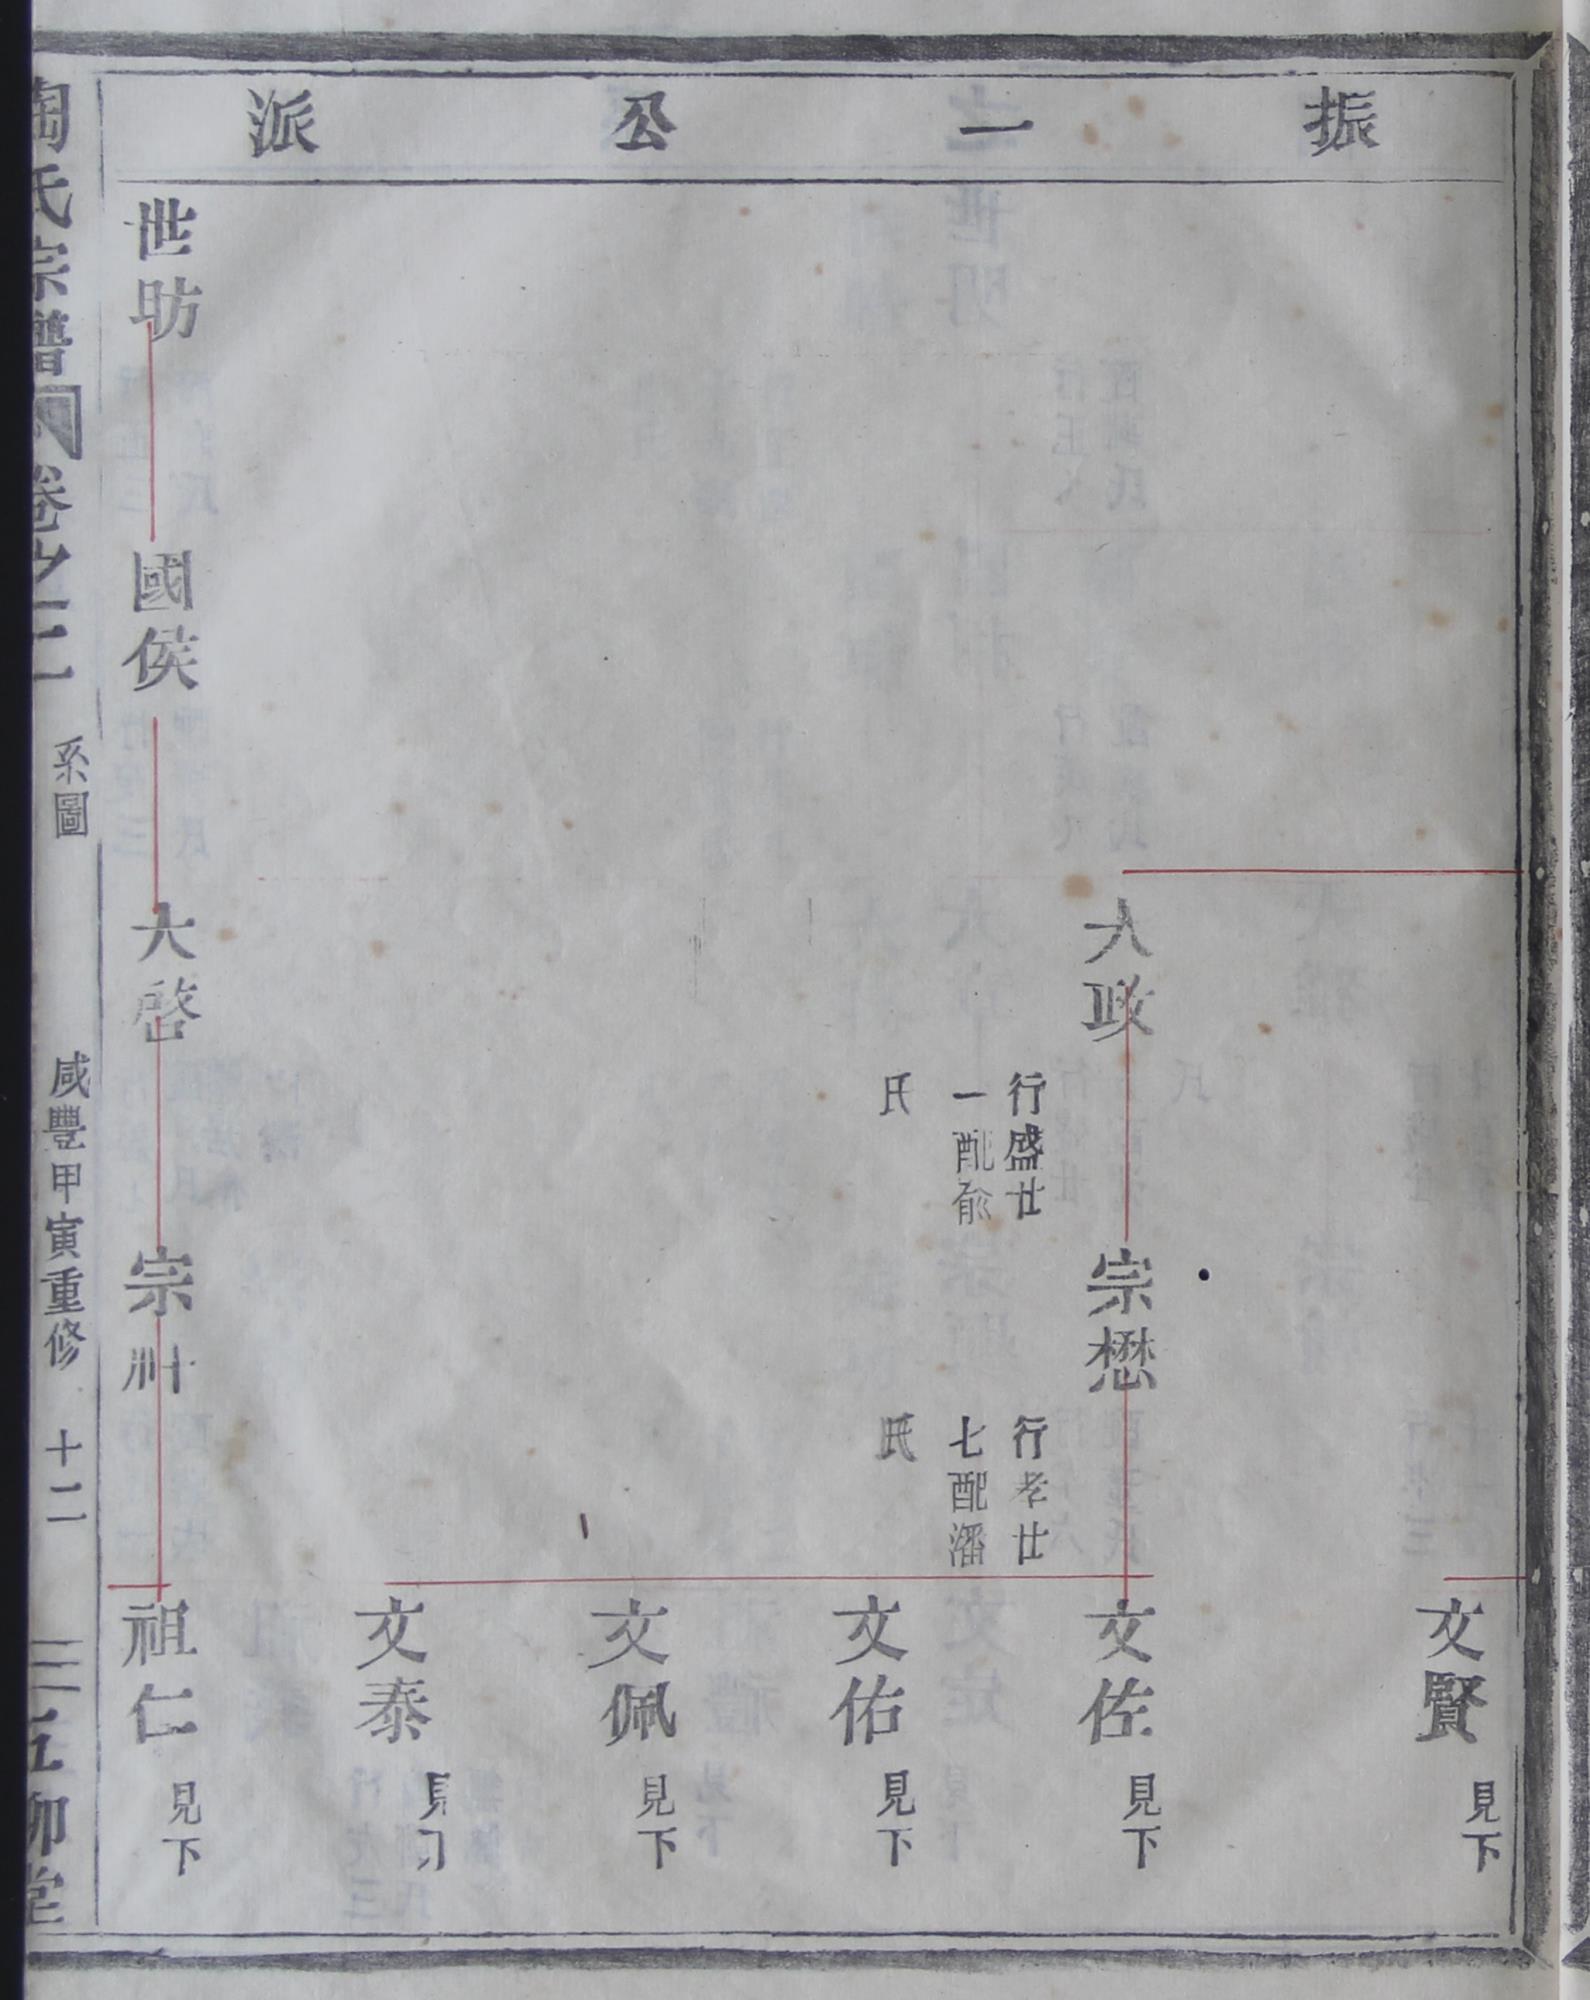 振一公派
文賢
見下
大政
行盛廿
一配俞
氏
宗懋
行孝廿
七配潘
氏
文佐
見下
文佑
見下
文佩
見下
文泰
見下
世昉
國侯
大啓
宗
祖仁
見下
陶氏宗譜 卷之二
系圖
咸豐甲寅重修
十二
五柳堂